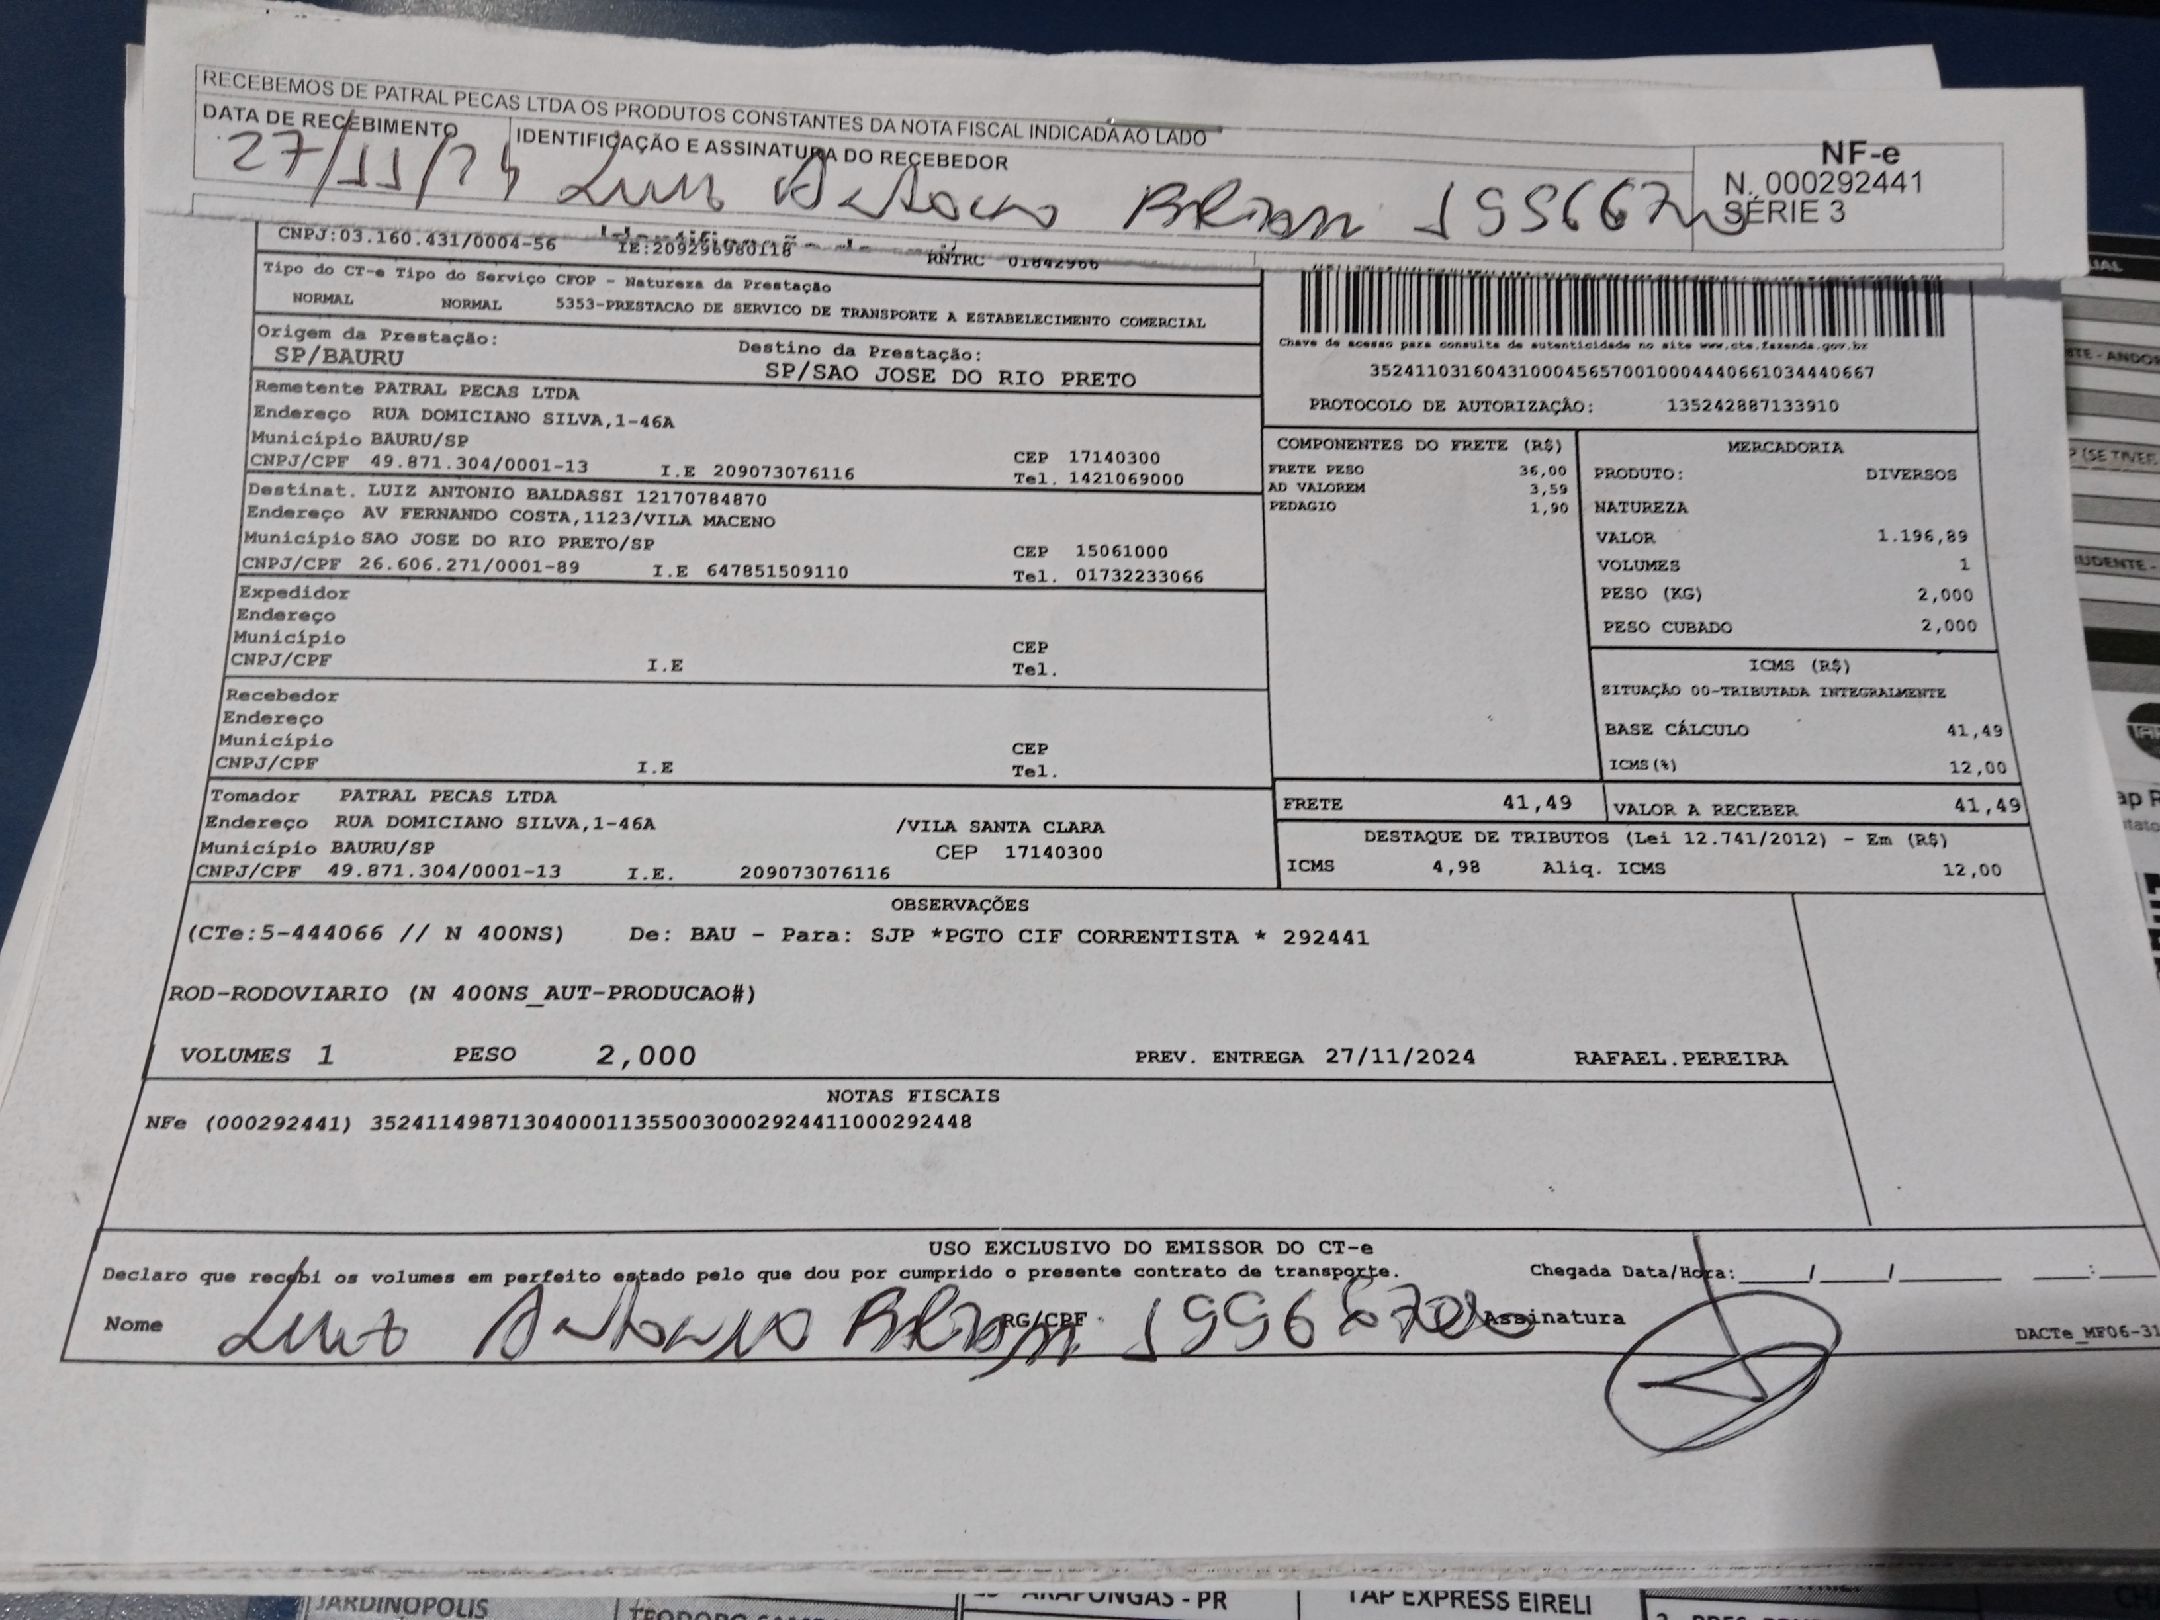 RECEBEMOS DE PATRAL PECAS LTDA OS PRODUTOS CONSTANTES DA NOTA FISCAL INDICADA AO LADO
DATA DE RECEBIMENTO IDENTIFICAÇÃO E ASSINATURA DO RECEBEDOR
27/11/24 Luiz Antonio
NF-e
N. 000292441
SÉRIE 3
CNPJ:03.160.431/0004-56 IE:209296980118 RNTRC 01842966
Tipo do CT-e Tipo do Serviço CFOP - Natureza da Prestação
NORMAL NORMAL 5353-PRESTACAO DE SERVICO DE TRANSPORTE A ESTABELECIMENTO COMERCIAL
Origem da Prestação: Destino da Prestação:
SP/BAURU SP/SAO JOSE DO RIO PRETO
Remetente PATRAL PECAS LTDA
Endereço RUA DOMICIANO SILVA,1-46A
Município BAURU/SP CEP 17140300
CNPJ/CPF 49.871.304/0001-13 I.E 209073076116 Tel. 1421069000
Destinat. LUIZ ANTONIO BALDASSI 12170784870
Endereço AV FERNANDO COSTA,1123/VILA MACENO
Município SAO JOSE DO RIO PRETO/SP CEP 15061000
CNPJ/CPF 26.606.271/0001-89 I.E 647851509110 Tel. 01732233066
Expedidor
Endereço
Município CEP
CNPJ/CPF I.E Tel.
Recebedor
Endereço
Município CEP
CNPJ/CPF I.E Tel.
Tomador PATRAL PECAS LTDA
Endereço RUA DOMICIANO SILVA,1-46A /VILA SANTA CLARA
Município BAURU/SP CEP 17140300
CNPJ/CPF 49.871.304/0001-13 I.E. 209073076116
Chave de acesso para consulta de autenticidade no site www.cte.fazenda.gov.br
35241103160431000456570010004440661034440667
PROTOCOLO DE AUTORIZAÇÃO: 135242887133910
COMPONENTES DO FRETE (R$)
FRETE PESO 36,00
AD VALOREM 3,59
PEDAGIO 1,90
MERCADORIA
PRODUTO: DIVERSOS
NATUREZA
VALOR 1.196,89
VOLUMES 1
PESO (KG) 2,000
PESO CUBADO 2,000
ICMS (R$)
SITUAÇÃO 00-TRIBUTADA INTEGRALMENTE
BASE CÁLCULO 41,49
ICMS(%) 12,00
FRETE 41,49 VALOR A RECEBER 41,49
DESTAQUE DE TRIBUTOS (Lei 12.741/2012) - Em (R$)
ICMS 4,98 Aliq. ICMS 12,00
OBSERVAÇÕES
(CTe:5-444066 // N 400NS) De: BAU - Para: SJP *PGTO CIF CORRENTISTA * 292441
ROD-RODOVIARIO (N 400NS_AUT-PRODUCAO#)
VOLUMES 1 PESO 2,000 PREV. ENTREGA 27/11/2024 RAFAEL.PEREIRA
NOTAS FISCAIS
NFe (000292441) 35241149871304000113550030002924411000292448
USO EXCLUSIVO DO EMISSOR DO CT-e
Declaro que recebi os volumes em perfeito estado pelo que dou por cumprido o presente contrato de transporte. Chegada Data/Hora:
Nome Luiz Antonio RG/CPF Assinatura
DACTe_MF06-31
JARDINOPOLIS
ARAPONGAS - PR
TAP EXPRESS EIRELI